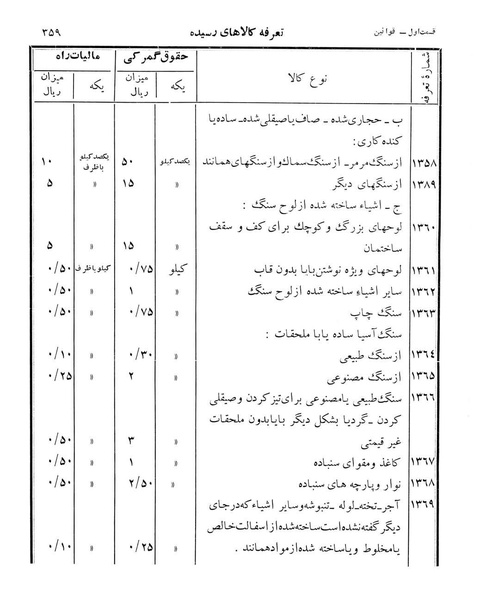 قسمت اول – قوانین	تعرفه کالاهای رسیده	۳۵۹
شمارهٔ تعرفه	نوع کالا	حقوق گمرکی	مالیات راه
یکه	میزان ریال	یکه	میزان ریال
ب – حجاری شده – صاف یا صیقلی شده – ساده یا
کنده کاری :
۱۳۵۸	از سنگ مرمر – از سنگ سماك و از سنگهای همانند	یکصد کیلو	۵۰	یکصد کیلو با ظرف	۱۰
۱۳۸۹	از سنگهای دیگر	»	۱۵	»	۵
ج – اشیاء ساخته شده از لوح سنگ :
۱۳۶۰	لوحهای بزرگ و کوچك برای کف و سقف
ساختمان	»	۱۵	»	۵
۱۳۶۱	لوحهای ویژه نوشتن با یا بدون قاب	کیلو	۰/۷۵	کیلو با ظرف	۰/۵۰
۱۳۶۲	سایر اشیاء ساخته شده از لوح سنگ	»	۱	»	۰/۵۰
۱۳۶۳	سنگ چاپ	»	۰/۷۵	»	۰/۵۰
سنگ آسیا ساده یا با ملحقات :
۱۳۶۴	از سنگ طبیعی	»	۰/۳۰	»	۰/۱۰
۱۳۶۵	از سنگ مصنوعی	»	۲	»	۰/۲۵
۱۳۶۶	سنگ طبیعی یا مصنوعی برای تیز کردن و صیقلی
کردن – گرد یا بشکل دیگر با یا بدون ملحقات
غیر قیمتی	»	۳	»	۰/۵۰
۱۳۶۷	کاغذ و مقوای سنباده	»	۱	»	۰/۵۰
۱۳۶۸	نوار و پارچه های سنباده	»	۲/۵۰	»	۰/۵۰
۱۳۶۹	آجر – تخته – لوله – تنبوشه و سایر اشیاء که در جای
دیگر گفته نشده است ساخته شده از اسفالت خالص
یا مخلوط و یا ساخته شده از مواد همانند .	»	۰/۲۵	»	۰/۱۰